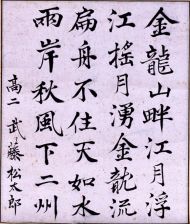 金龍山畔江月浮
江搖月湧金龍流
扁舟不住天如水
兩岸秋風下二州
高二 武藤松太郎